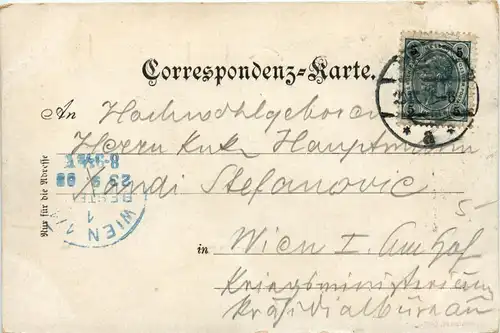 Correspondenz-Karte.
An Hochwohlgeboren
Herrn K.u.K. Hauptmann
Stefanovic
in Wien I. Am Hof
Kriegsministerium
Präsidialbureau
Nur für die Adresse
8-9½V
23 9 99
BESTELLT
WIEN 1/1
1
5
5
5
5-
8